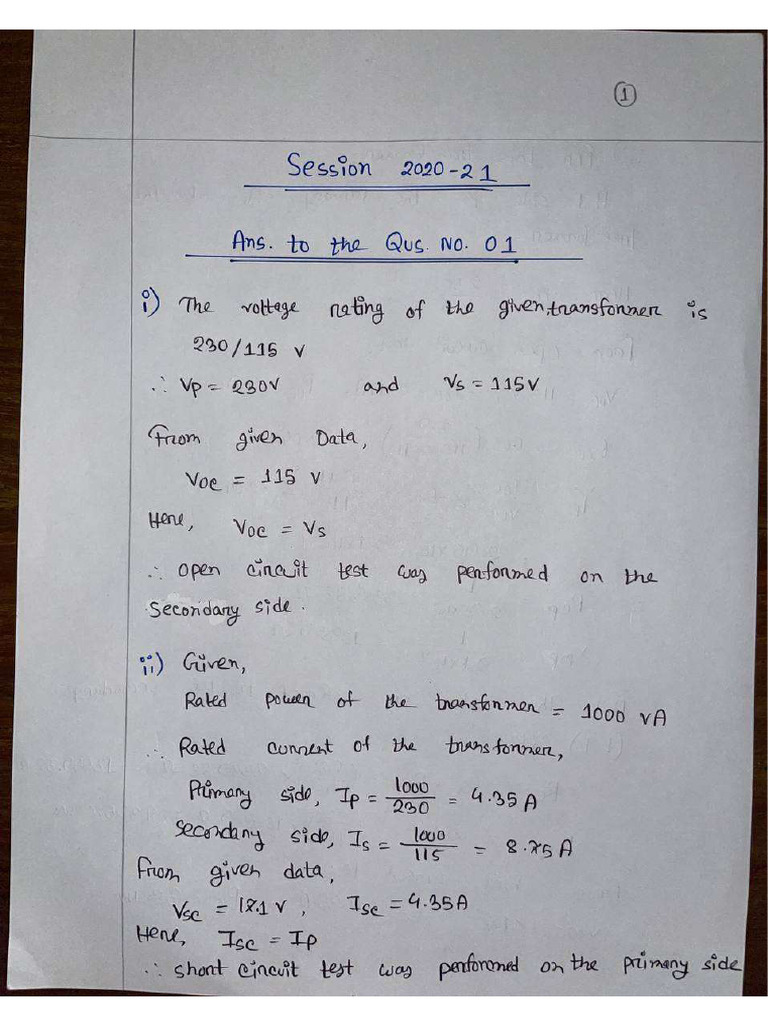 1
Session 2020-21
Ans. to the Qus. No. 01
i) The voltage rating of the given transformer is
230/115 V
∴ Vp = 230V and Vs = 115V
From given Data,
VOC = 115 V
Here, VOC = Vs
∴ Open circuit test was performed on the
Secondary side.
ii) Given,
Rated power of the transformer = 1000 VA
∴ Rated current of the transformer,
Primary side, Ip = 1000/230 = 4.35 A
Secondary side, Is = 1000/115 = 8.75 A
From given data,
Vsc = 18.1 V, Isc = 4.35A
Here, Isc = Ip
∴ Short circuit test was performed on the primary side